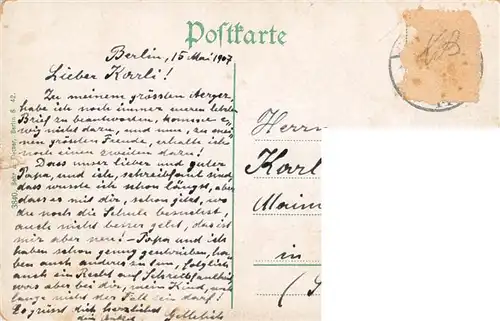 Postkarte
Berlin, 15 Mai 1907
Lieber Karli!
Zu meinem grössten Aerger,
habe ich noch immer
Brief zu beantworten, komme e-
wig nicht dazu, und nun, zu mei-
nen grössten Freude, erhalte ich
noch einen zweiten dazu!
Dass unser lieber und guter
Papa, und ich, schreibfaul sind
das wusste ich schon längst, aber
dass es mit dir, schon jetzt, wo
du noch die Schule besuchst,
auch nicht besser geht, das ist
mir aber neu! - Papa und ich
haben schon genug geschrieben, ha-
ben auch anderes zu tun, folglich
auch ein Recht auf Schreibfaulheit
was aber bei dir, mein Kind, noch
lange nicht der Fall sein darf!
Es grüsst dich herzlichst
Herrn
Karl
in